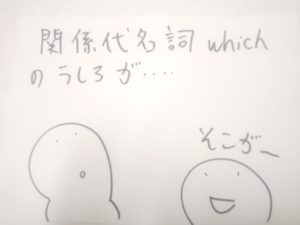 関係代名詞 which
のうしろが‥‥
そこがー